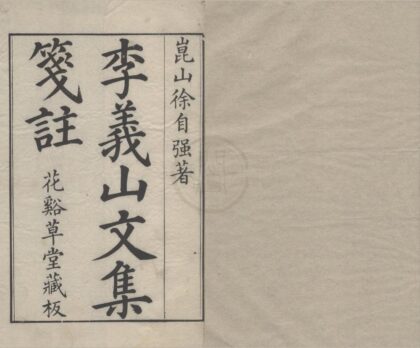 崑山徐自强著
李義山文集
箋註
花谿草堂藏板